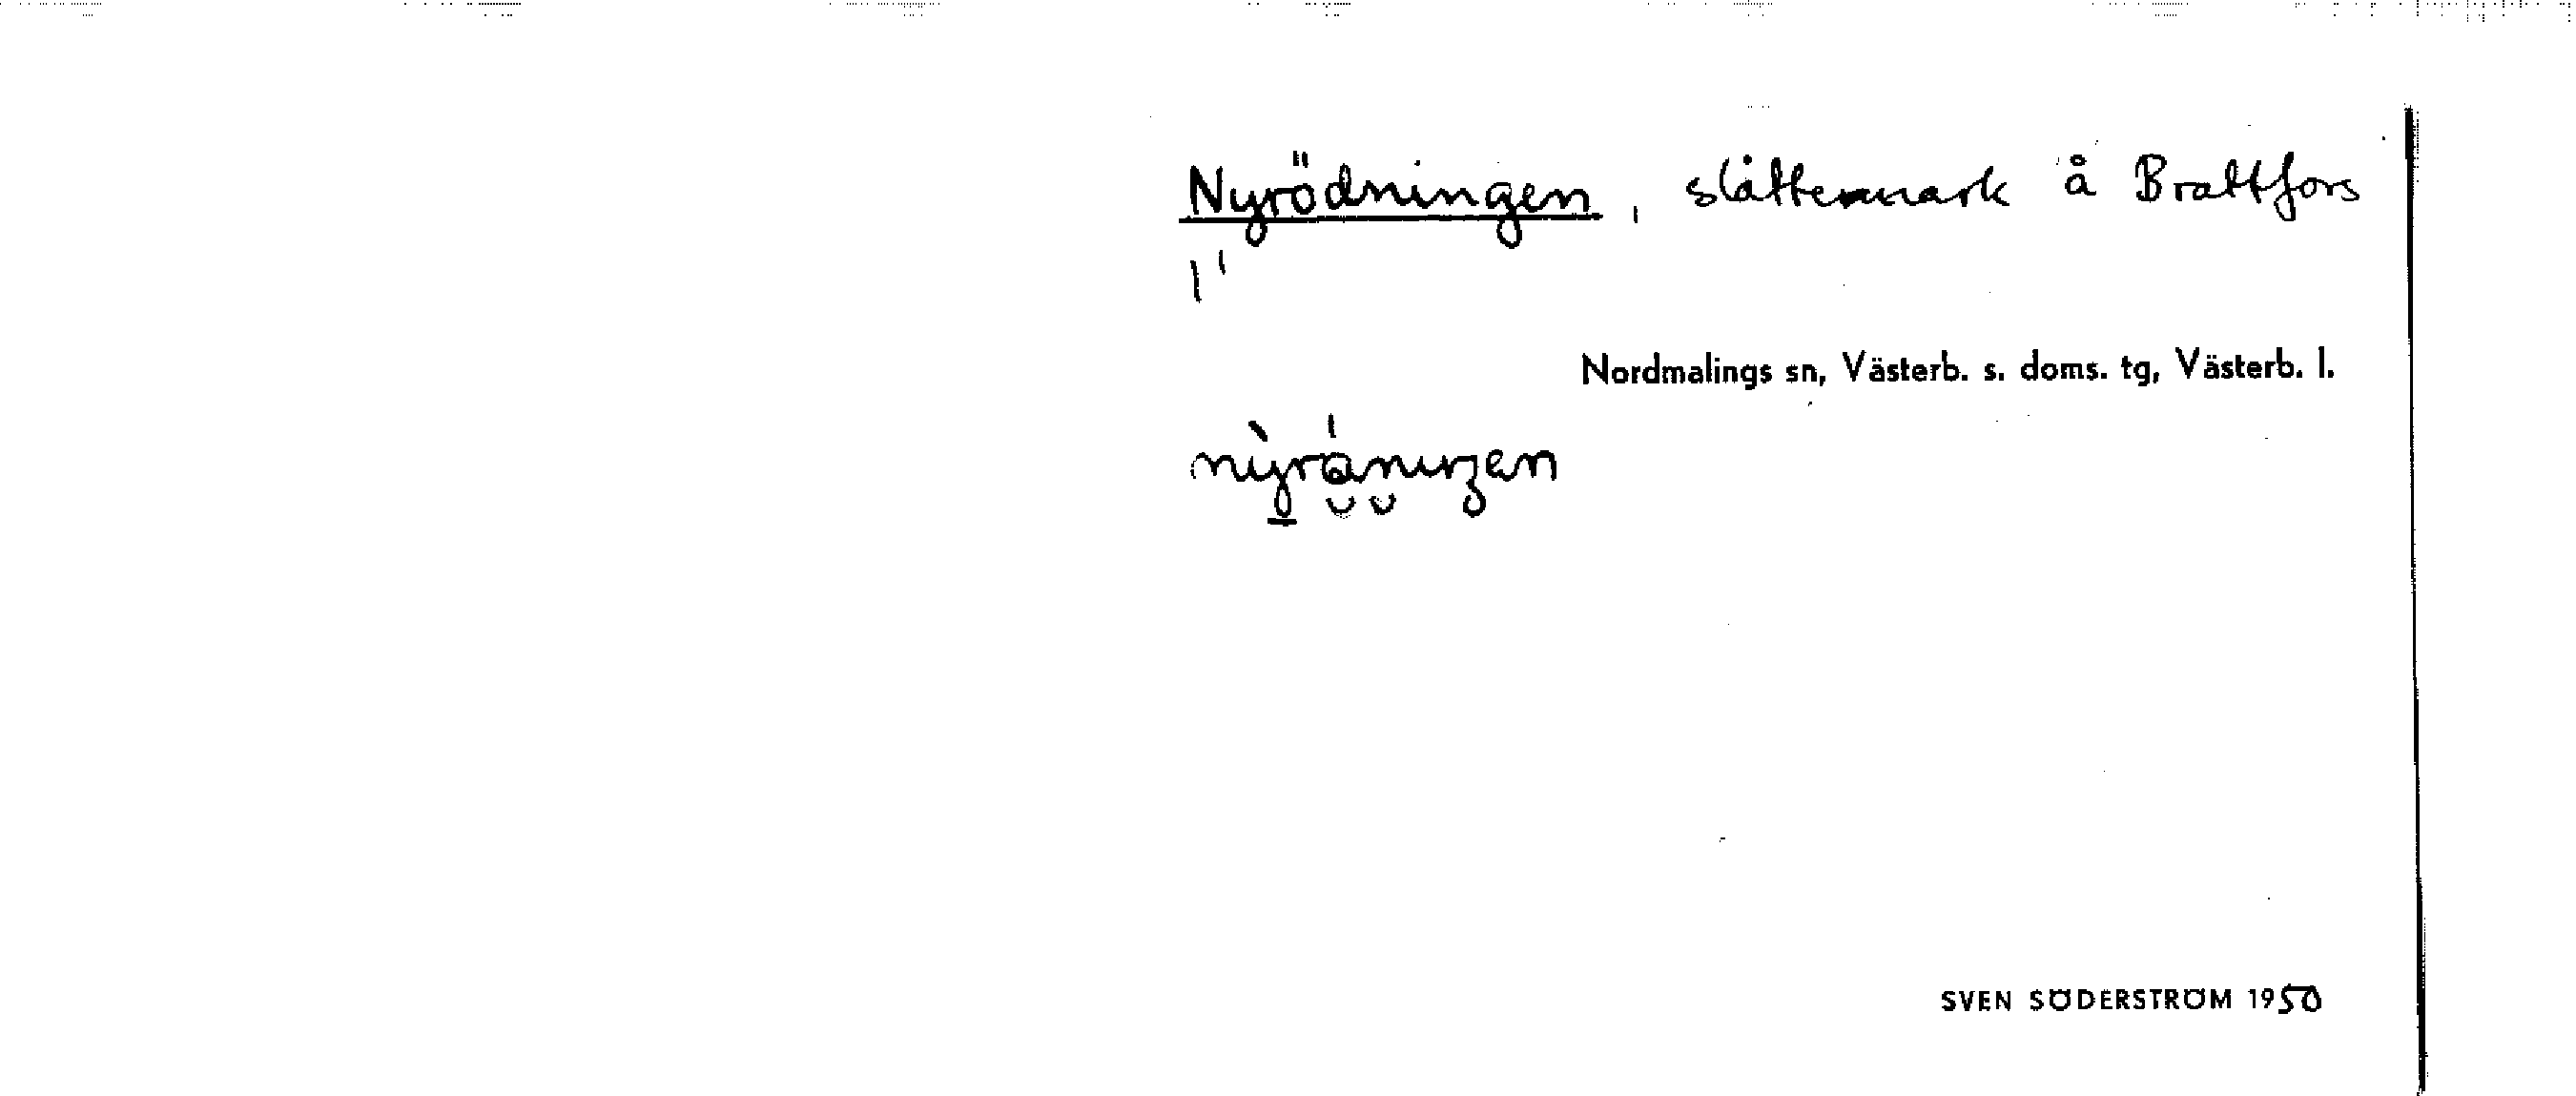 Nyrödningen, slåttermark å Brattfors
1'
Nordmalings sn, Västerb. s. doms. tg, Västerb. l.
SVEN SÖDERSTRÖM 1950